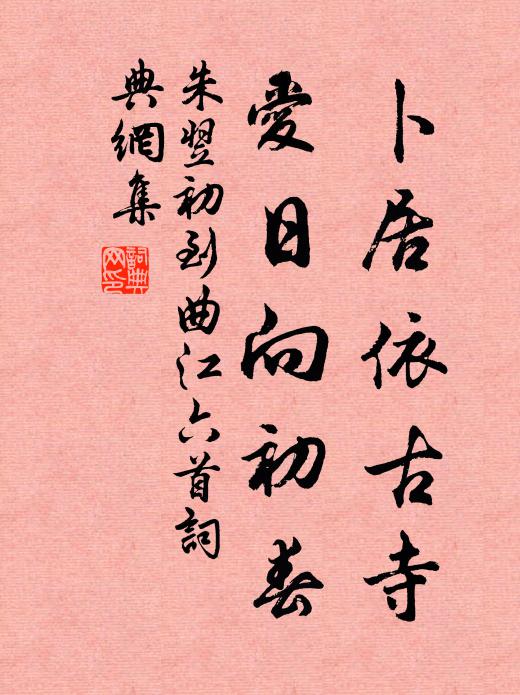 卜居依古寺
愛日向初春
朱翌初到曲江六首詞
典網集
詞典網印